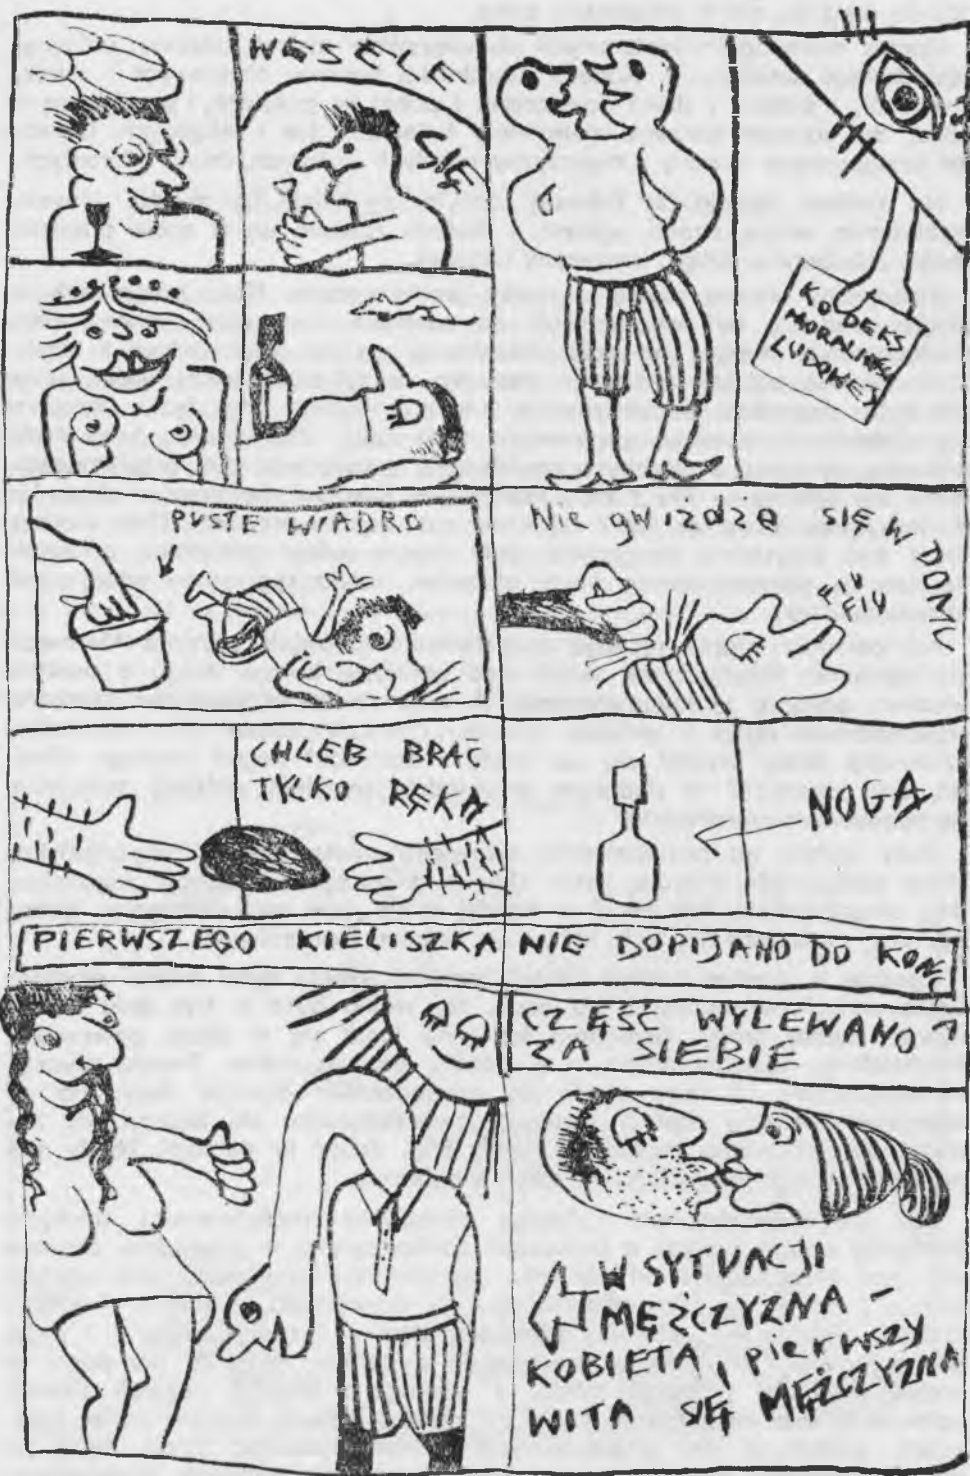 WESELE
KODEKS
LUDOWEJ
PUSTE WIADRO
NIE gwiżdże SIĘ
W DOMU
FIU
FIU
CHLEB BRAĆ
TYLKO RĘKĄ
NOGA
PIERWSZEGO KIELISZKA NIE DOPIJANO DO KOŃCA
CZĘŚĆ WYLEWANO
ZA SIEBIE
W SYTUACJI
MĘŻCZYZNA -
KOBIETA, pierwszy
WITA SIĘ MĘŻCZYZNA